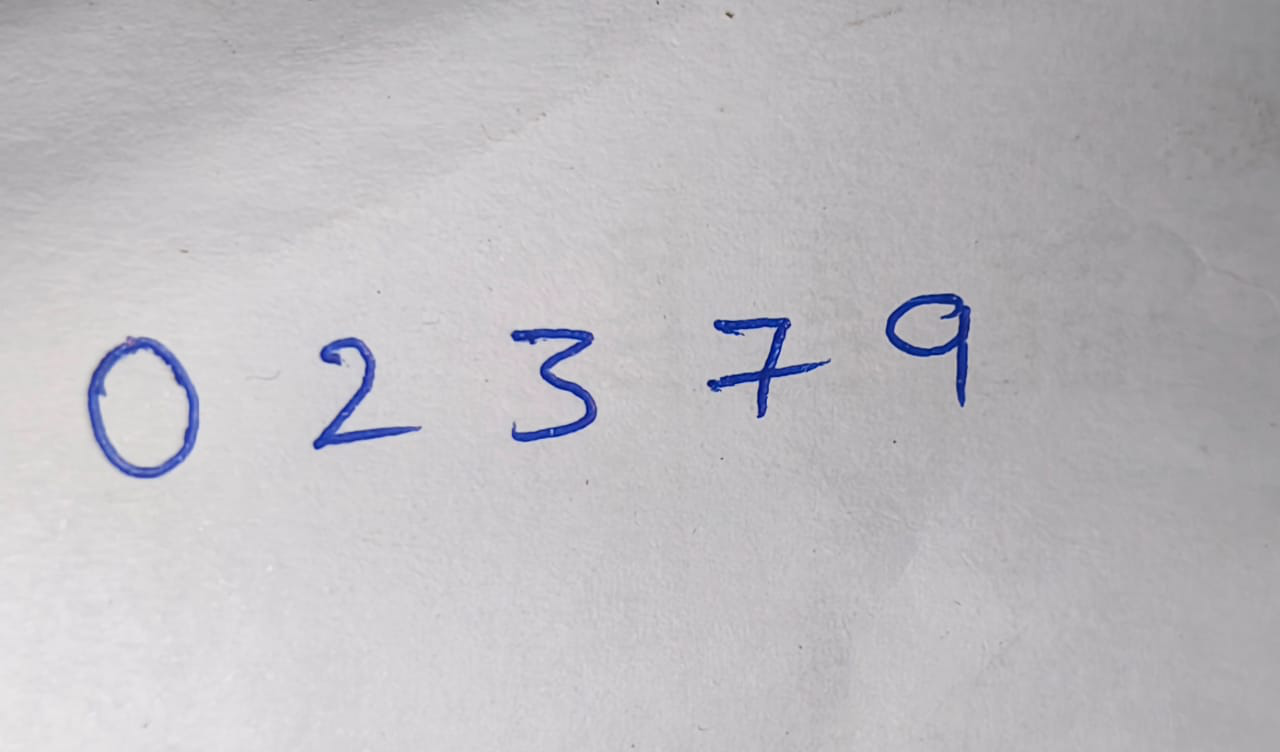 0 2 3 7 9